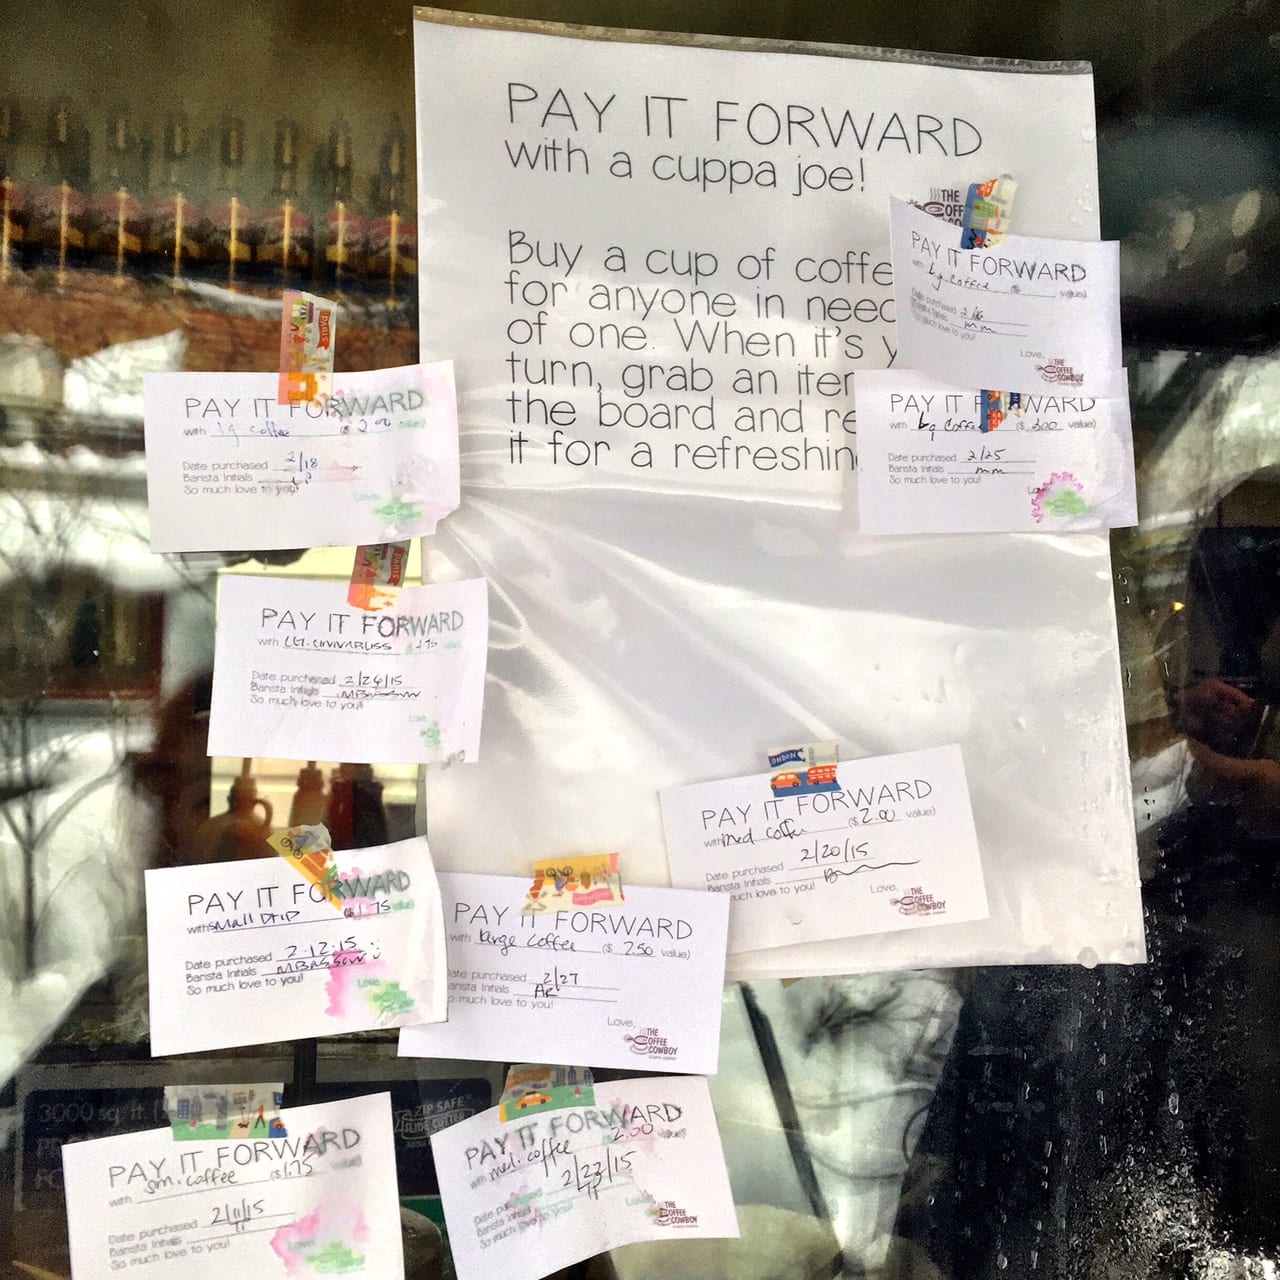 PAY IT FORWARD
with a cuppa joe!
Buy a cup of coffe
for anyone in need
of one. When it's y
turn, grab an item
the board and re
it for a refreshin
THE
COFF
CO
PAY IT FORWARD
with lg coffee ($ value)
Date purchased 2/26
Barista Initials mm
So much love to you!
Love,
THE
COFFEE
COWBOY
PAY IT FORWARD
with lg coffee ($ 2.00 value)
Date purchased 2/25
Barista Initials mm
So much love to you!
PAY IT FORWARD
with lg coffee ($ 2.00 value)
Date purchased 2/18
Barista Initials
So much love to you!
Love,
PARIS
PAY IT FORWARD
with 1.75 value)
Date purchased 2/24/15
Barista Initials MBassow
So much love to you!
Love,
PARIS
LONDON
PAY IT FORWARD
with Med coffee ($ 2.00 value)
Date purchased 2/20/15
Barista Initials
So much love to you!
Love,
THE
COFFEE
COWBOY
PAY IT FORWARD
with small drip ($ 1.75 value)
Date purchased 2.12.15
Barista Initials MBassow
So much love to you!
Love,
PAY IT FORWARD
with large coffee ($ 2.50 value)
Date purchased 2/27
Barista Initials AR
So much love to you!
Love,
THE
COFFEE
COWBOY
PAY IT FORWARD
with sm. coffee $1.75 value)
Date purchased 2/11/15
Barista Initials
So much love to you!
Love,
PAY IT FORWARD
with med. coffee 2.00 value)
Date purchased 2/23/15
Barista Initials
So much love to you!
Love,
THE
COFFEE
COWBOY
3000 sq. ft.
ZIP SAFE
SLIDE CUTTER